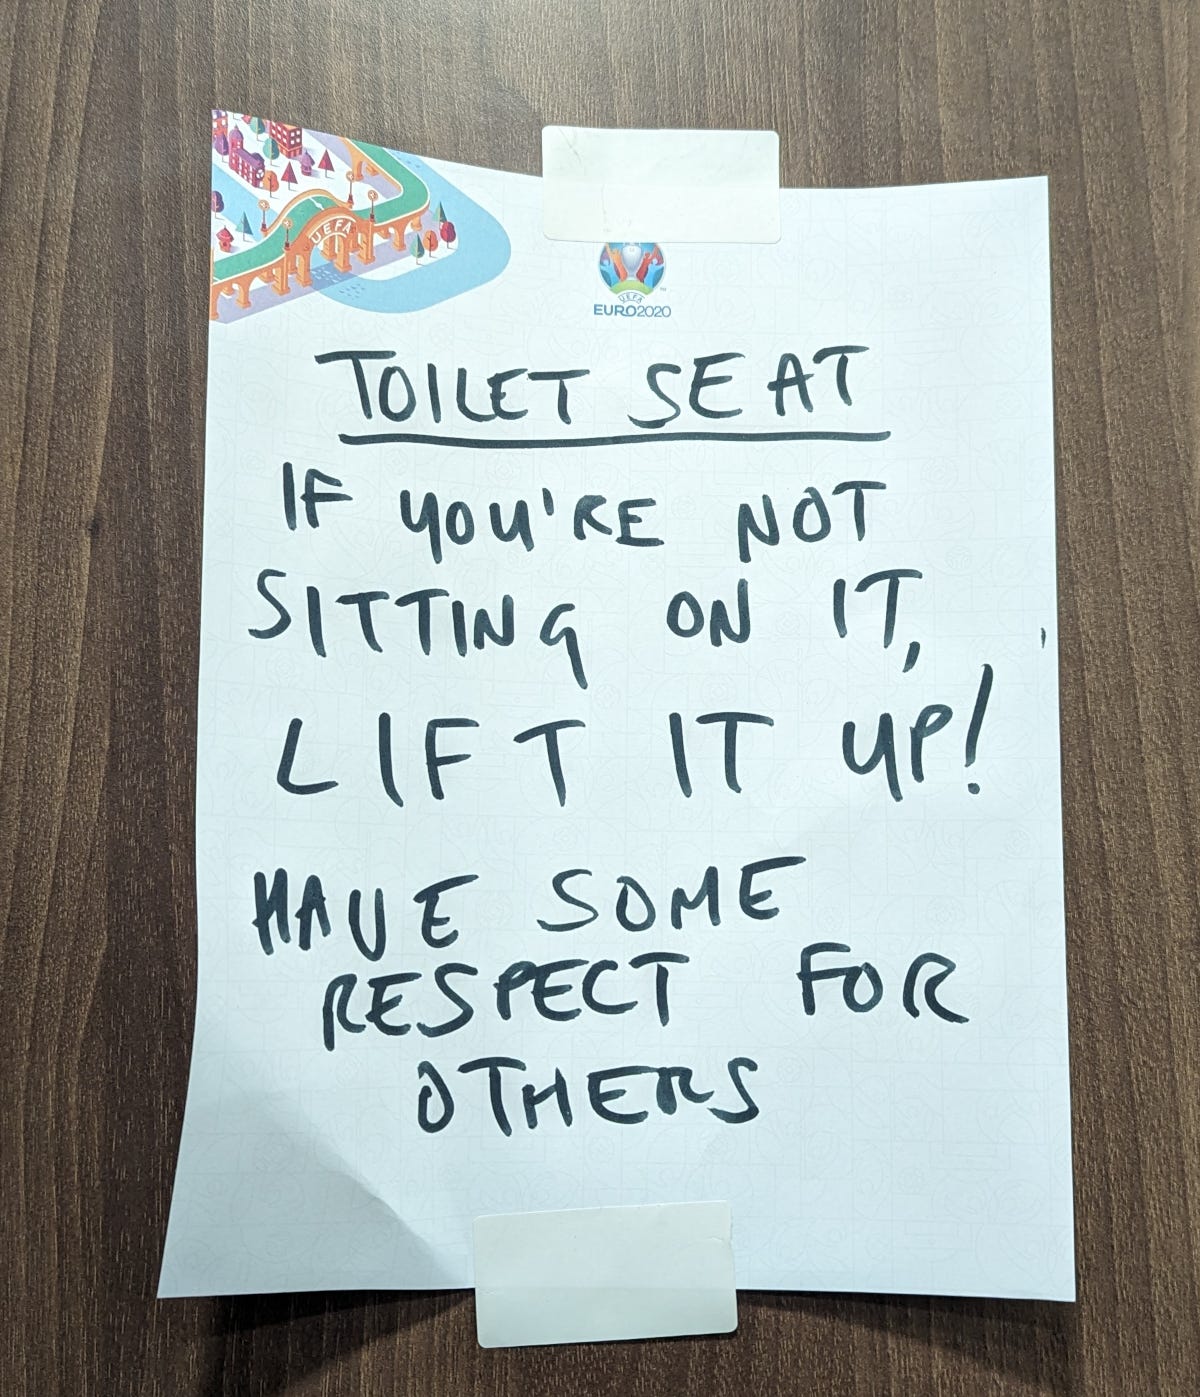 UEFA
UEFA
EURO2020
TM
TOILET SEAT
IF YOU'RE NOT
SITTING ON IT,
LIFT IT UP!
HAVE SOME
RESPECT FOR
OTHERS